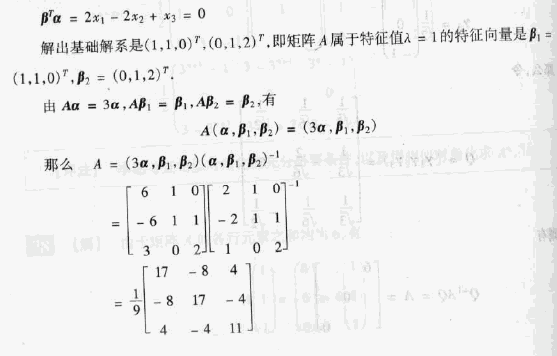 βᵀα = 2x₁ - 2x₂ + x₃ = 0
解出基础解系是(1,1,0)ᵀ,(0,1,2)ᵀ,即矩阵A属于特征值λ = 1的特征向量是β₁ =
(1,1,0)ᵀ,β₂ = (0,1,2)ᵀ.
由 Aα = 3α,Aβ₁ = β₁,Aβ₂ = β₂,有
A(α,β₁,β₂) = (3α,β₁,β₂)
那么 A = (3α,β₁,β₂)(α,β₁,β₂)⁻¹
= [6 1 0; -6 1 1; 3 0 2][2 1 0; -2 1 1; 1 0 2]⁻¹
= 1/9 [17 -8 4; -8 17 -4; 4 -4 11]